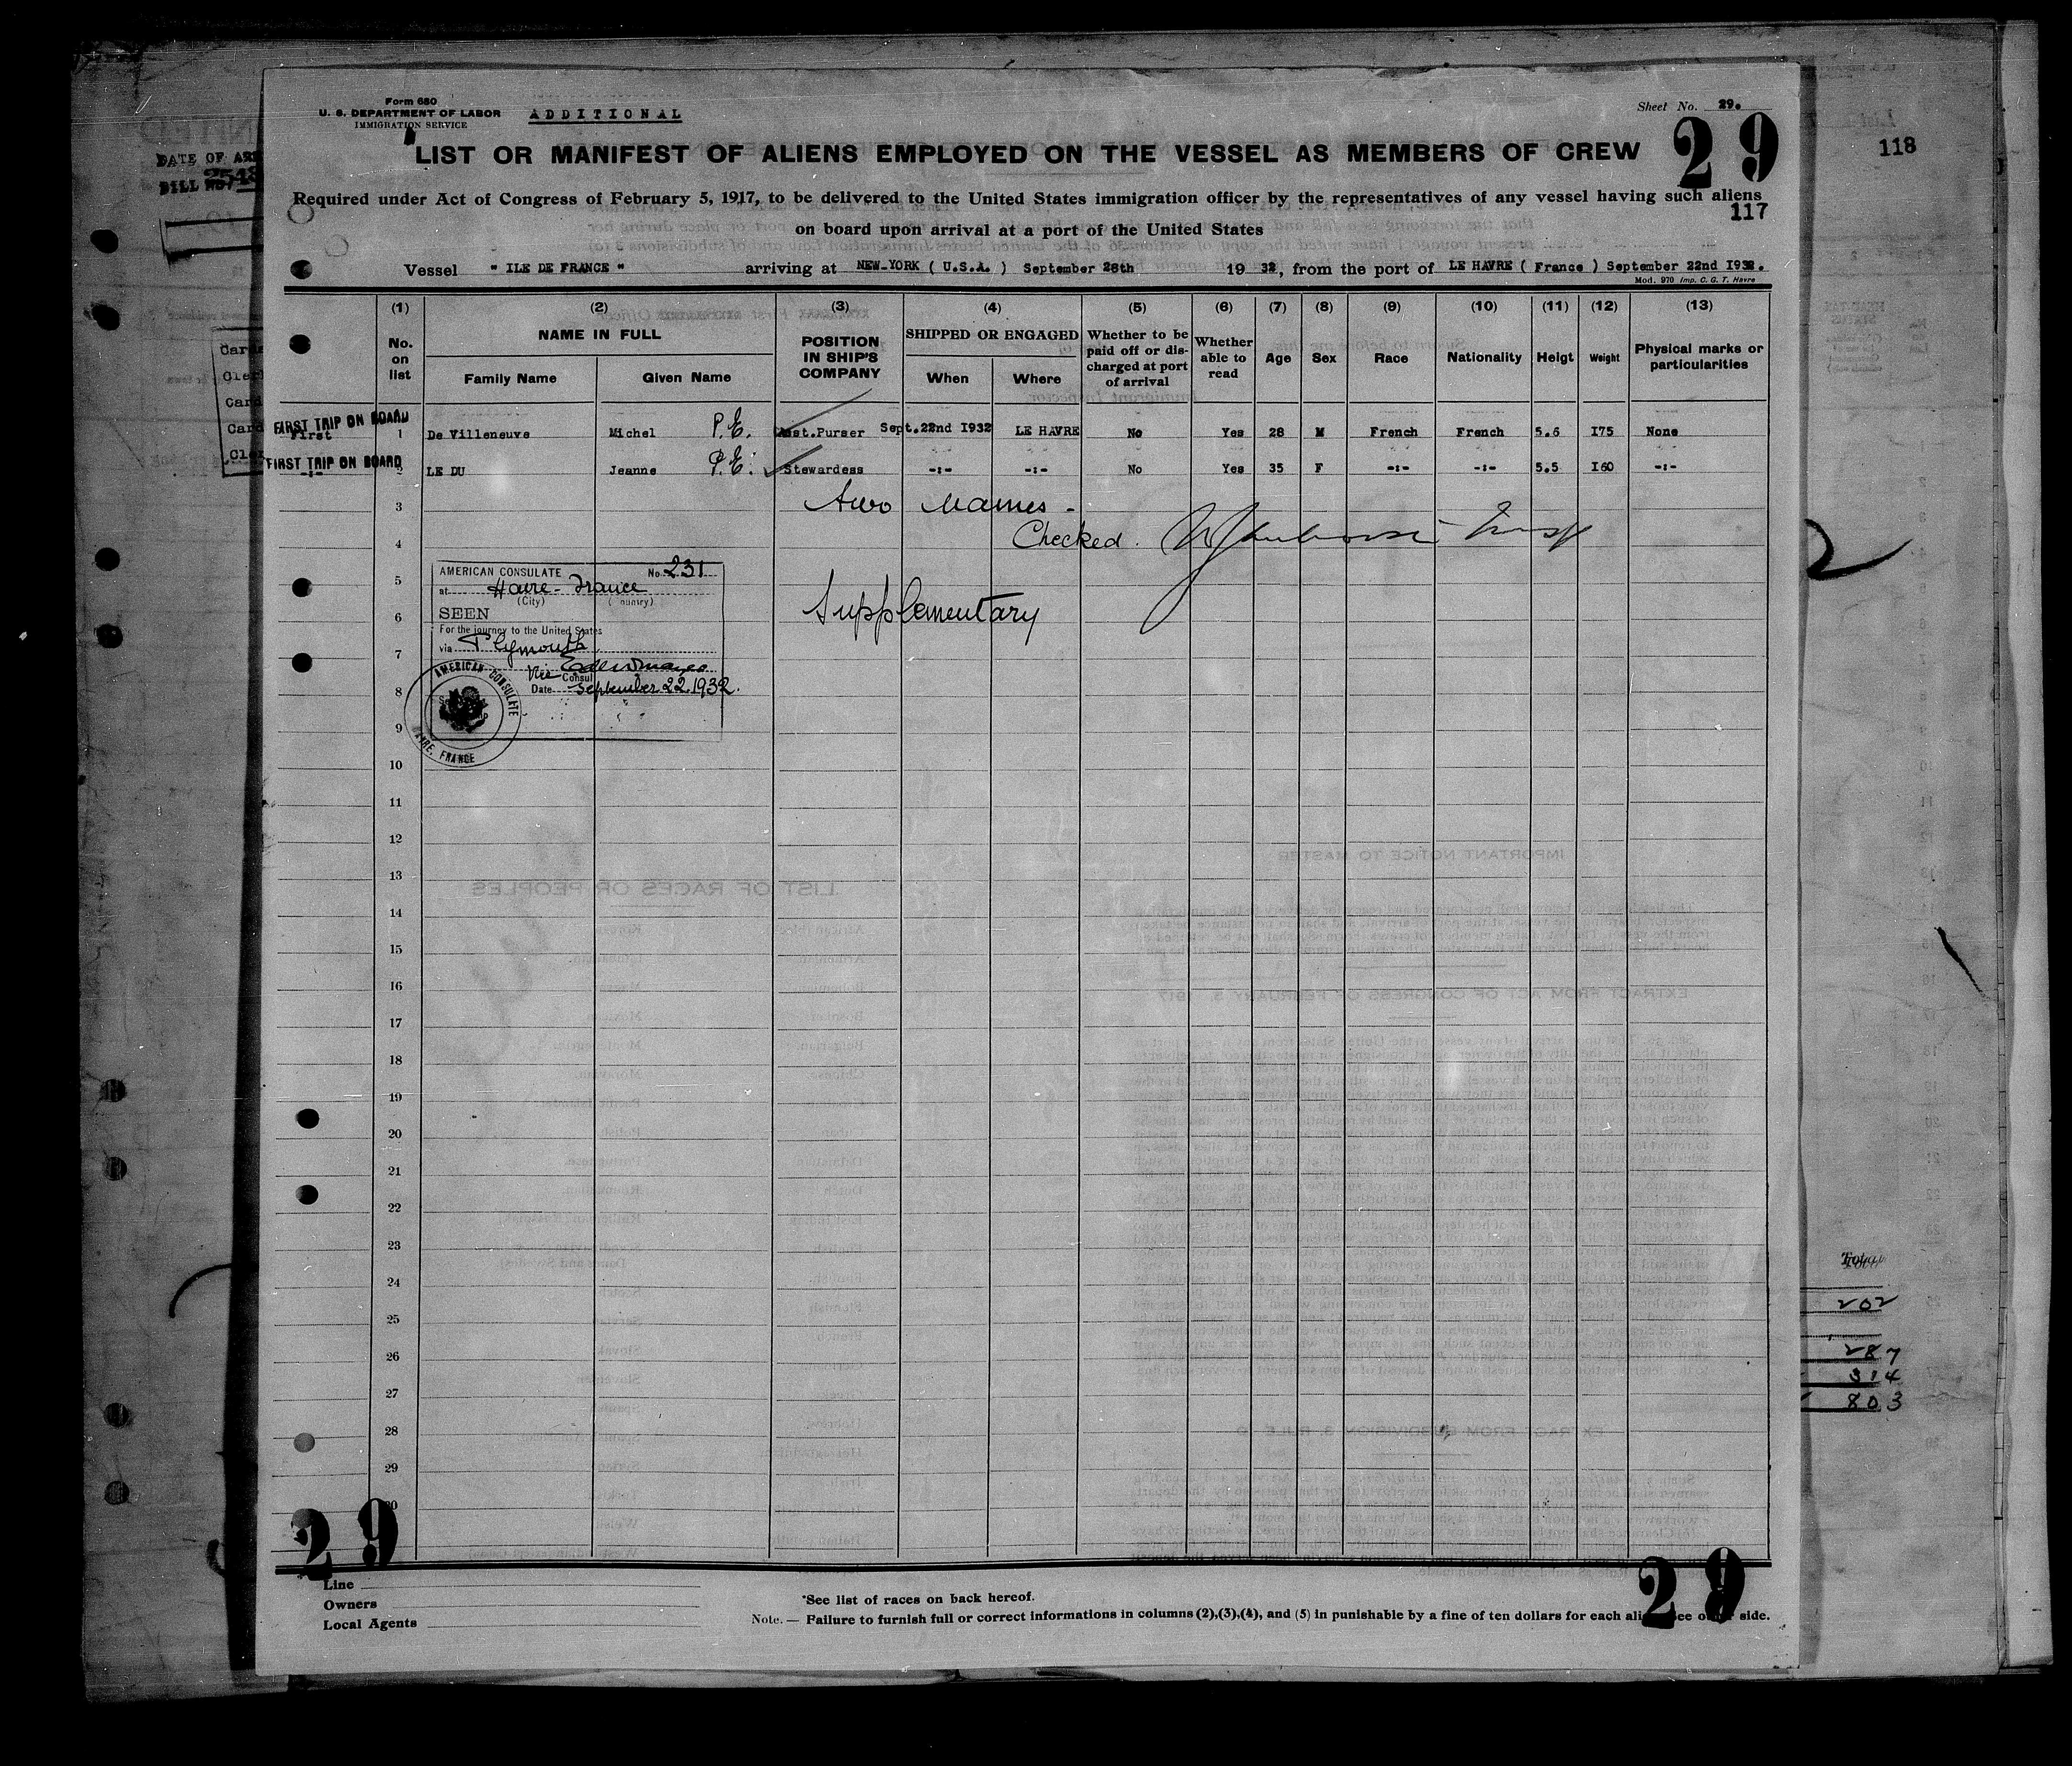 Form 680
U. S. DEPARTMENT OF LABOR
IMMIGRATION SERVICE
ADDITIONAL
Sheet No. 29.
29
118
DATE OF
BILL
LIST OR MANIFEST OF ALIENS EMPLOYED ON THE VESSEL AS MEMBERS OF CREW
Required under Act of Congress of February 5, 1917, to be delivered to the United States immigration officer by the representatives of any vessel having such aliens
117
on board upon arrival at a port of the United States
Vessel " ILE DE FRANCE " arriving at NEW-YORK ( U.S.A. ) September 28th 19 32, from the port of LE HAVRE ( France ) September 22nd I932.
Mod. 970 Imp. C. G. T. Havre
(1) (2) (3) (4) (5) (6) (7) (8) (9) (10) (11) (12) (13)
No. on list
NAME IN FULL
Family Name Given Name
POSITION IN SHIP'S COMPANY
SHIPPED OR ENGAGED
When Where
Whether to be paid off or discharged at port of arrival
Whether able to read
Age Sex Race Nationality Heigt Weight
Physical marks or particularities
FIRST TRIP ON BOARD
First 1 De Villeneuve Michel P.E. Asst.Purser Sept.22nd I932 LE HAVRE No Yes 28 M French French 5.6 I75 None
FIRST TRIP ON BOARD
-:- 2 LE DU Jeanne P.E. Stewardess -:- -:- No Yes 35 F -:- -:- 5.5 I60 -:-
3 Two Names -
4 Checked.
5
6 Supplementary
7
8
9
10
11
12
13
14
15
16
17
18
19
20
21
22
23
24
25
26
27
28
29
30
AMERICAN CONSULATE No. 231
at Havre - France
(City) (Country)
SEEN
For the journey to the United States
via Plymouth
Vice Consul
Date September 22. 1932.
AMERICAN CONSULATE
HAVRE, FRANCE
202
287
314
803
29
29
Line
Owners
Local Agents
*See list of races on back hereof.
Note. — Failure to furnish full or correct informations in columns (2),(3),(4), and (5) in punishable by a fine of ten dollars for each alien. See other side.